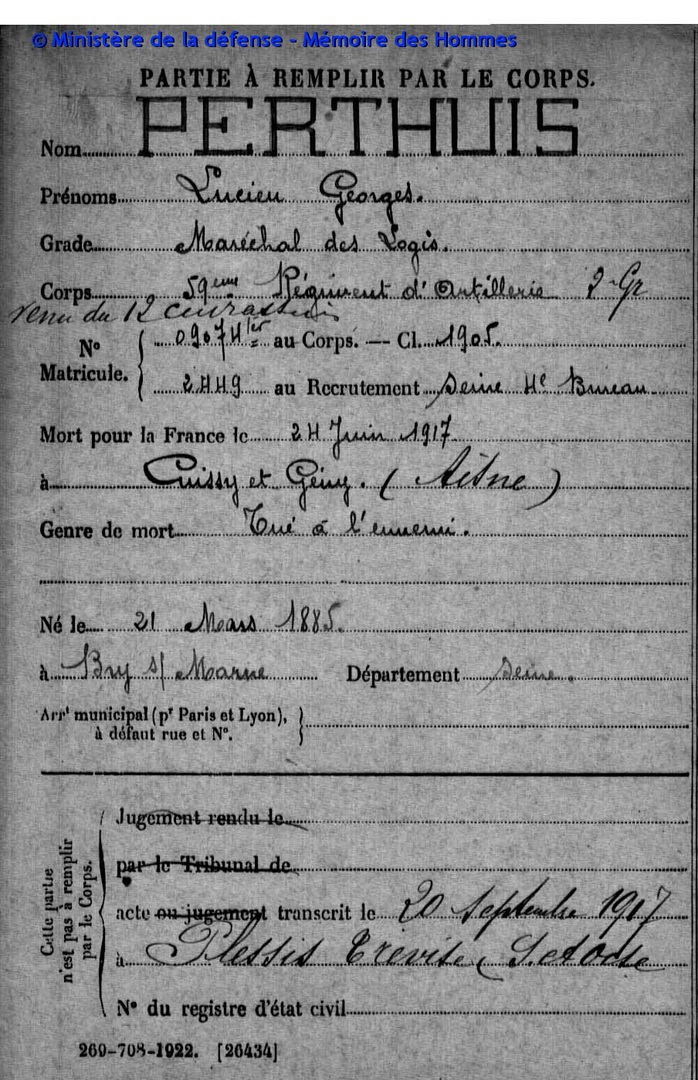 © Ministère de la défense - Mémoire des Hommes
PARTIE À REMPLIR PAR LE CORPS.
Nom PERTHUIS
Prénoms Lucien Georges.
Grade Maréchal des Logis.
Corps 59eme Régiment d'Artillerie 2e Gr
venu du 12 cuirassiers
N° Matricule. 09074 au Corps. — Cl. 1905.
2449 au Recrutement Seine 4e Bureau
Mort pour la France le 24 Juin 1917
à Cuissy et Gény. (Aisne)
Genre de mort Tué à l'ennemi.
Né le 21 Mars 1885.
à Bry s/ Marne Département Seine.
Arrt municipal (pr Paris et Lyon),
à défaut rue et N°.
Cette partie n'est pas à remplir par le Corps.
Jugement rendu le
par le Tribunal de
acte ou jugement transcrit le 20 Septembre 1917
à Plessis Trévise (S. et Oise
N° du registre d'état civil
269-708-1922. [26434]